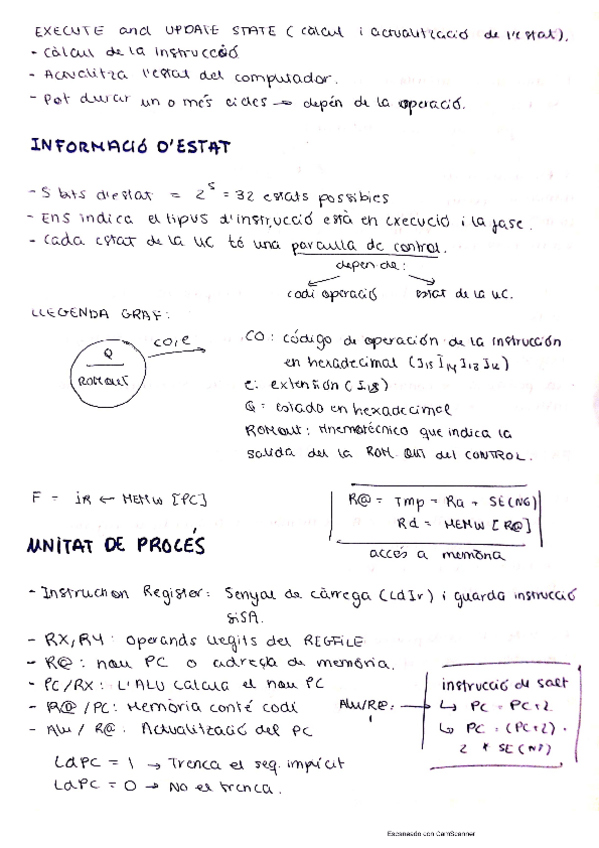 EXECUTE and UPDATE STATE (càlcul i actualització de l'estat).
- càlcul de la instrucció
- Actualitza l'estat del computador.
- Pot durar un o més cicles → depén de la operació.
INFORMACIÓ D'ESTAT
- 5 bits d'estat = 2^5 = 32 estats possibles
- Ens indica el tipus d'instrucció està en execució i la fase.
- Cada estat de la UC té una paraula de control.
depen de:
codi operació estat de la UC.
LLEGENDA GRAF:
Q
ROMout
CO,e
CO: código de operación de la instrucción
en hexadecimal (I15 I14 I13 I12)
e: extensión (I8)
Q = estado en hexadecimal
ROMout: Mnemotécnico que indica la
salida del la ROM OUT del CONTROL.
F = IR ← MEMW [PC]
R@ = Tmp = Ra + SE(N6)
Rd = MEMW [R@]
accés a memòria
UNITAT DE PROCÉS
- Instruction Register: Senyal de càrrega (LdIr) i guarda instrucció
SISA.
- RX, RY: operands llegits del REGFILE
- R@: nou PC o adreça de memòria.
- PC/RX: L'ALU calcula el nou PC
- R@/PC: Memòria conté codi
- Alu/R@: Actualització del PC
Alu/R@:
instrucció de salt
↳ PC = PC+2
↳ PC = (PC+2) +
2 * SE(N8)
LdPC = 1 → Trenca el seq. implícit
LdPC = 0 → No el trenca.
Escaneado con CamScanner